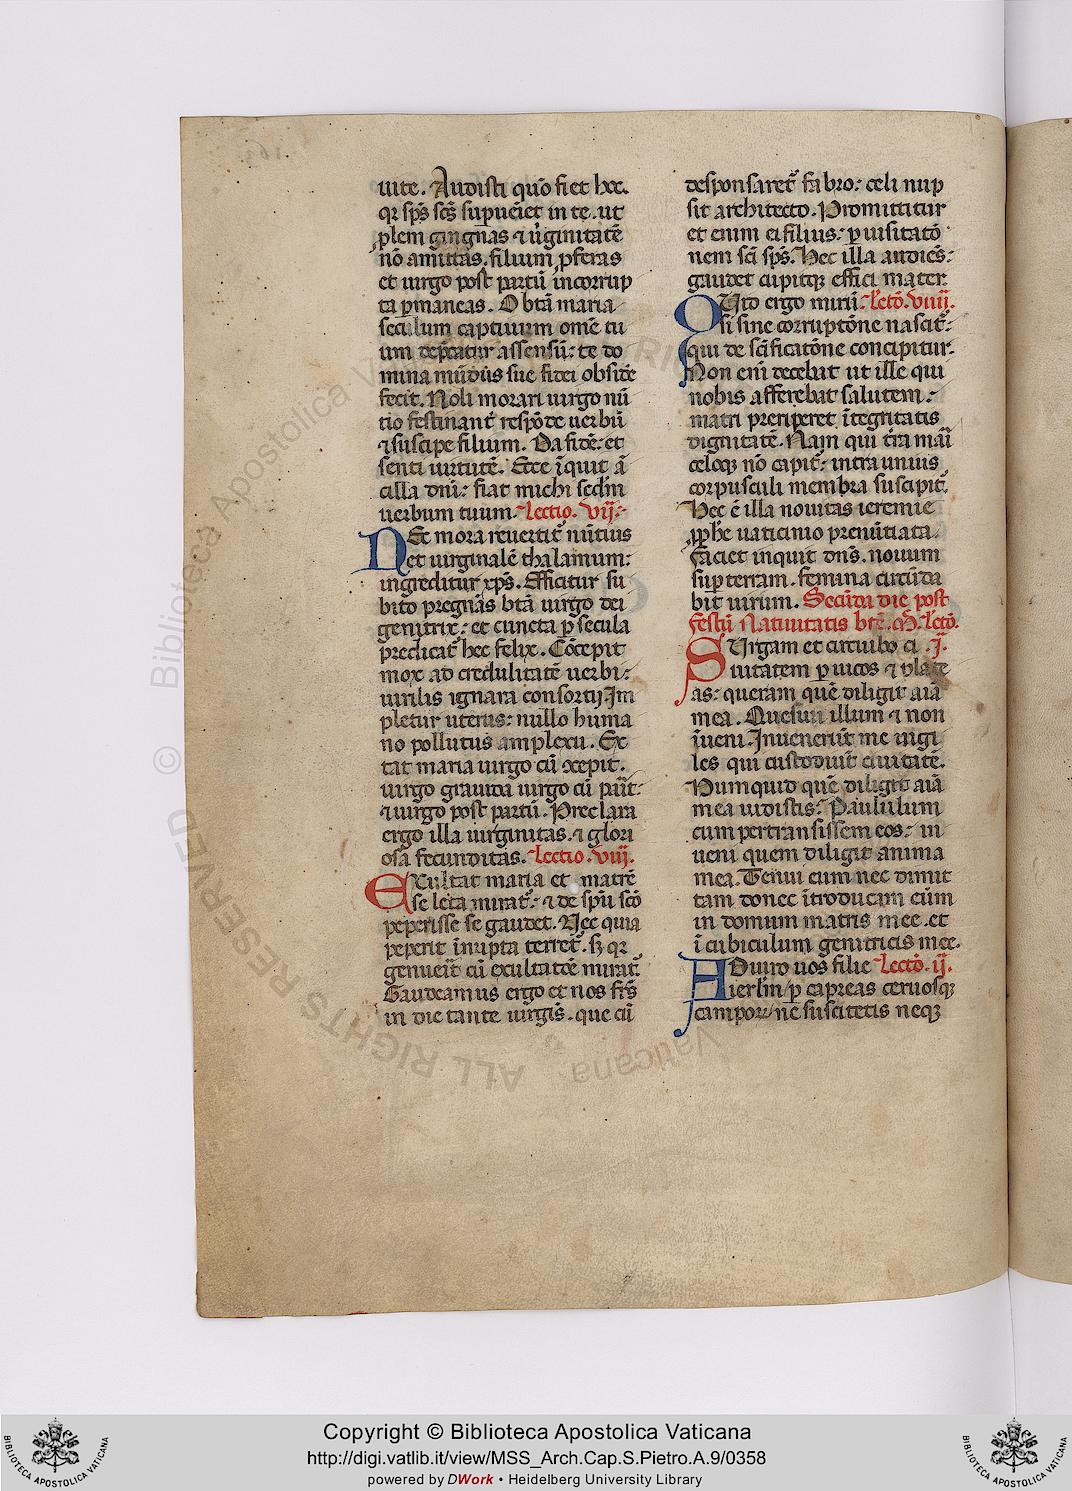 uite. Audisti quō fiet hec.
qr sp̄s sc̄s supueiet in te. ut
plem gingnas ⁊ uiginitatē
nō amittas. filium pferas
et uirgo post partū incorrup
ta pmaneas. O btā maria
seculum captiuum omē tu
um depcatur assensū: te do
mina mūdus sue fidei obside
fecit. Noli morari uirgo nū
tio festinant respōde uerbū
⁊ suscipe filium. Da fidē: et
senti uirtutē. Ecce īquit ā
cilla dnī: fiat michi scdm
uerbum tuum. Lectio. vij:
Nec mora reuertit nūtius
et uirginalē thalamum:
ingreditur xp̄s. Efficitur su
bito pregnās btā uirgo dei
genitrix: et cuncta p secula
predicat hec felix. Cōcepit
mox ad credulitatē uerbi:
uirilis ignara consortij. Im
pletur uterus: nullo huma
no pollutus amplexu. Ex
tat maria uirgo cū ɔcepit.
uirgo grauida uirgo cū parit:
⁊ uirgo post partū. Preclara
ergo illa uirginitas. ⁊ glori
osa fecunditas. Lectio. viij.
Exultat maria et matrē
se leta mirat: ⁊ de spū scō
peperisse se gaudet. Nec quia
peperit īnupta terret. sꝫ qr
genuerit cū exultatōe mirat.
Gaudeamus ergo et nos frs̄
in die tante uirgis. que cū
desponsaret fabro: celi nup
sit architecto. Promittitur
et enim ei filius: p uisitatō
nem sci sp̄s. Hec illa audiēs:
gaudet cupitqꝫ effici mater.
Quid ergo mirū: Lectō. viiij.
si sine corruptōne nascit:
qui de scificatōne concipitur.
Non enī decebat ut ille qui
nobis afferebat salutem:
matri preriperet ītegritatis
dignitatē. Nam qui tra mai
celoqꝫ nō capit: intra unius
corpusculi membra suscipit.
Hec ē illa nouitas ieremie
pphe uaticinio prenūtiata.
Faciet inquit dns. nouum
sup terram. femina circūda
bit uirum. Secūda die post
festū Natiuitatis bte. M. lectō.
Surgam et circuibo ci .j.
uitatem p uicos ⁊ plate
as: queram quē diligit aīa
mea. Quesiui illum ⁊ non
īueni. Inuenerūt me uigi
les qui custodiūt ciuitatē.
Numquid quē diligit aīa
mea uidistis: Paululum
cum pertransissem eos: in
ueni quem diligit anima
mea. Tenui eum nec dimit
tam donec ītroducam eūm
in domum matris mee. et
ī cubiculum genitricis mee.
ADiuro uos filie Lectō. ij.
ierlm p capreas ceruosqꝫ
campoꝝ ne suscitetis neqꝫ
© Biblioteca Apostolica Vaticana
ALL RIGHTS RESERVED
Copyright © Biblioteca Apostolica Vaticana
http://digi.vatlib.it/view/MSS_Arch.Cap.S.Pietro.A.9/0358
powered by DWork • Heidelberg University Library
BIBLIOTECA APOSTOLICA VATICANA
BIBLIOTECA APOSTOLICA VATICANA